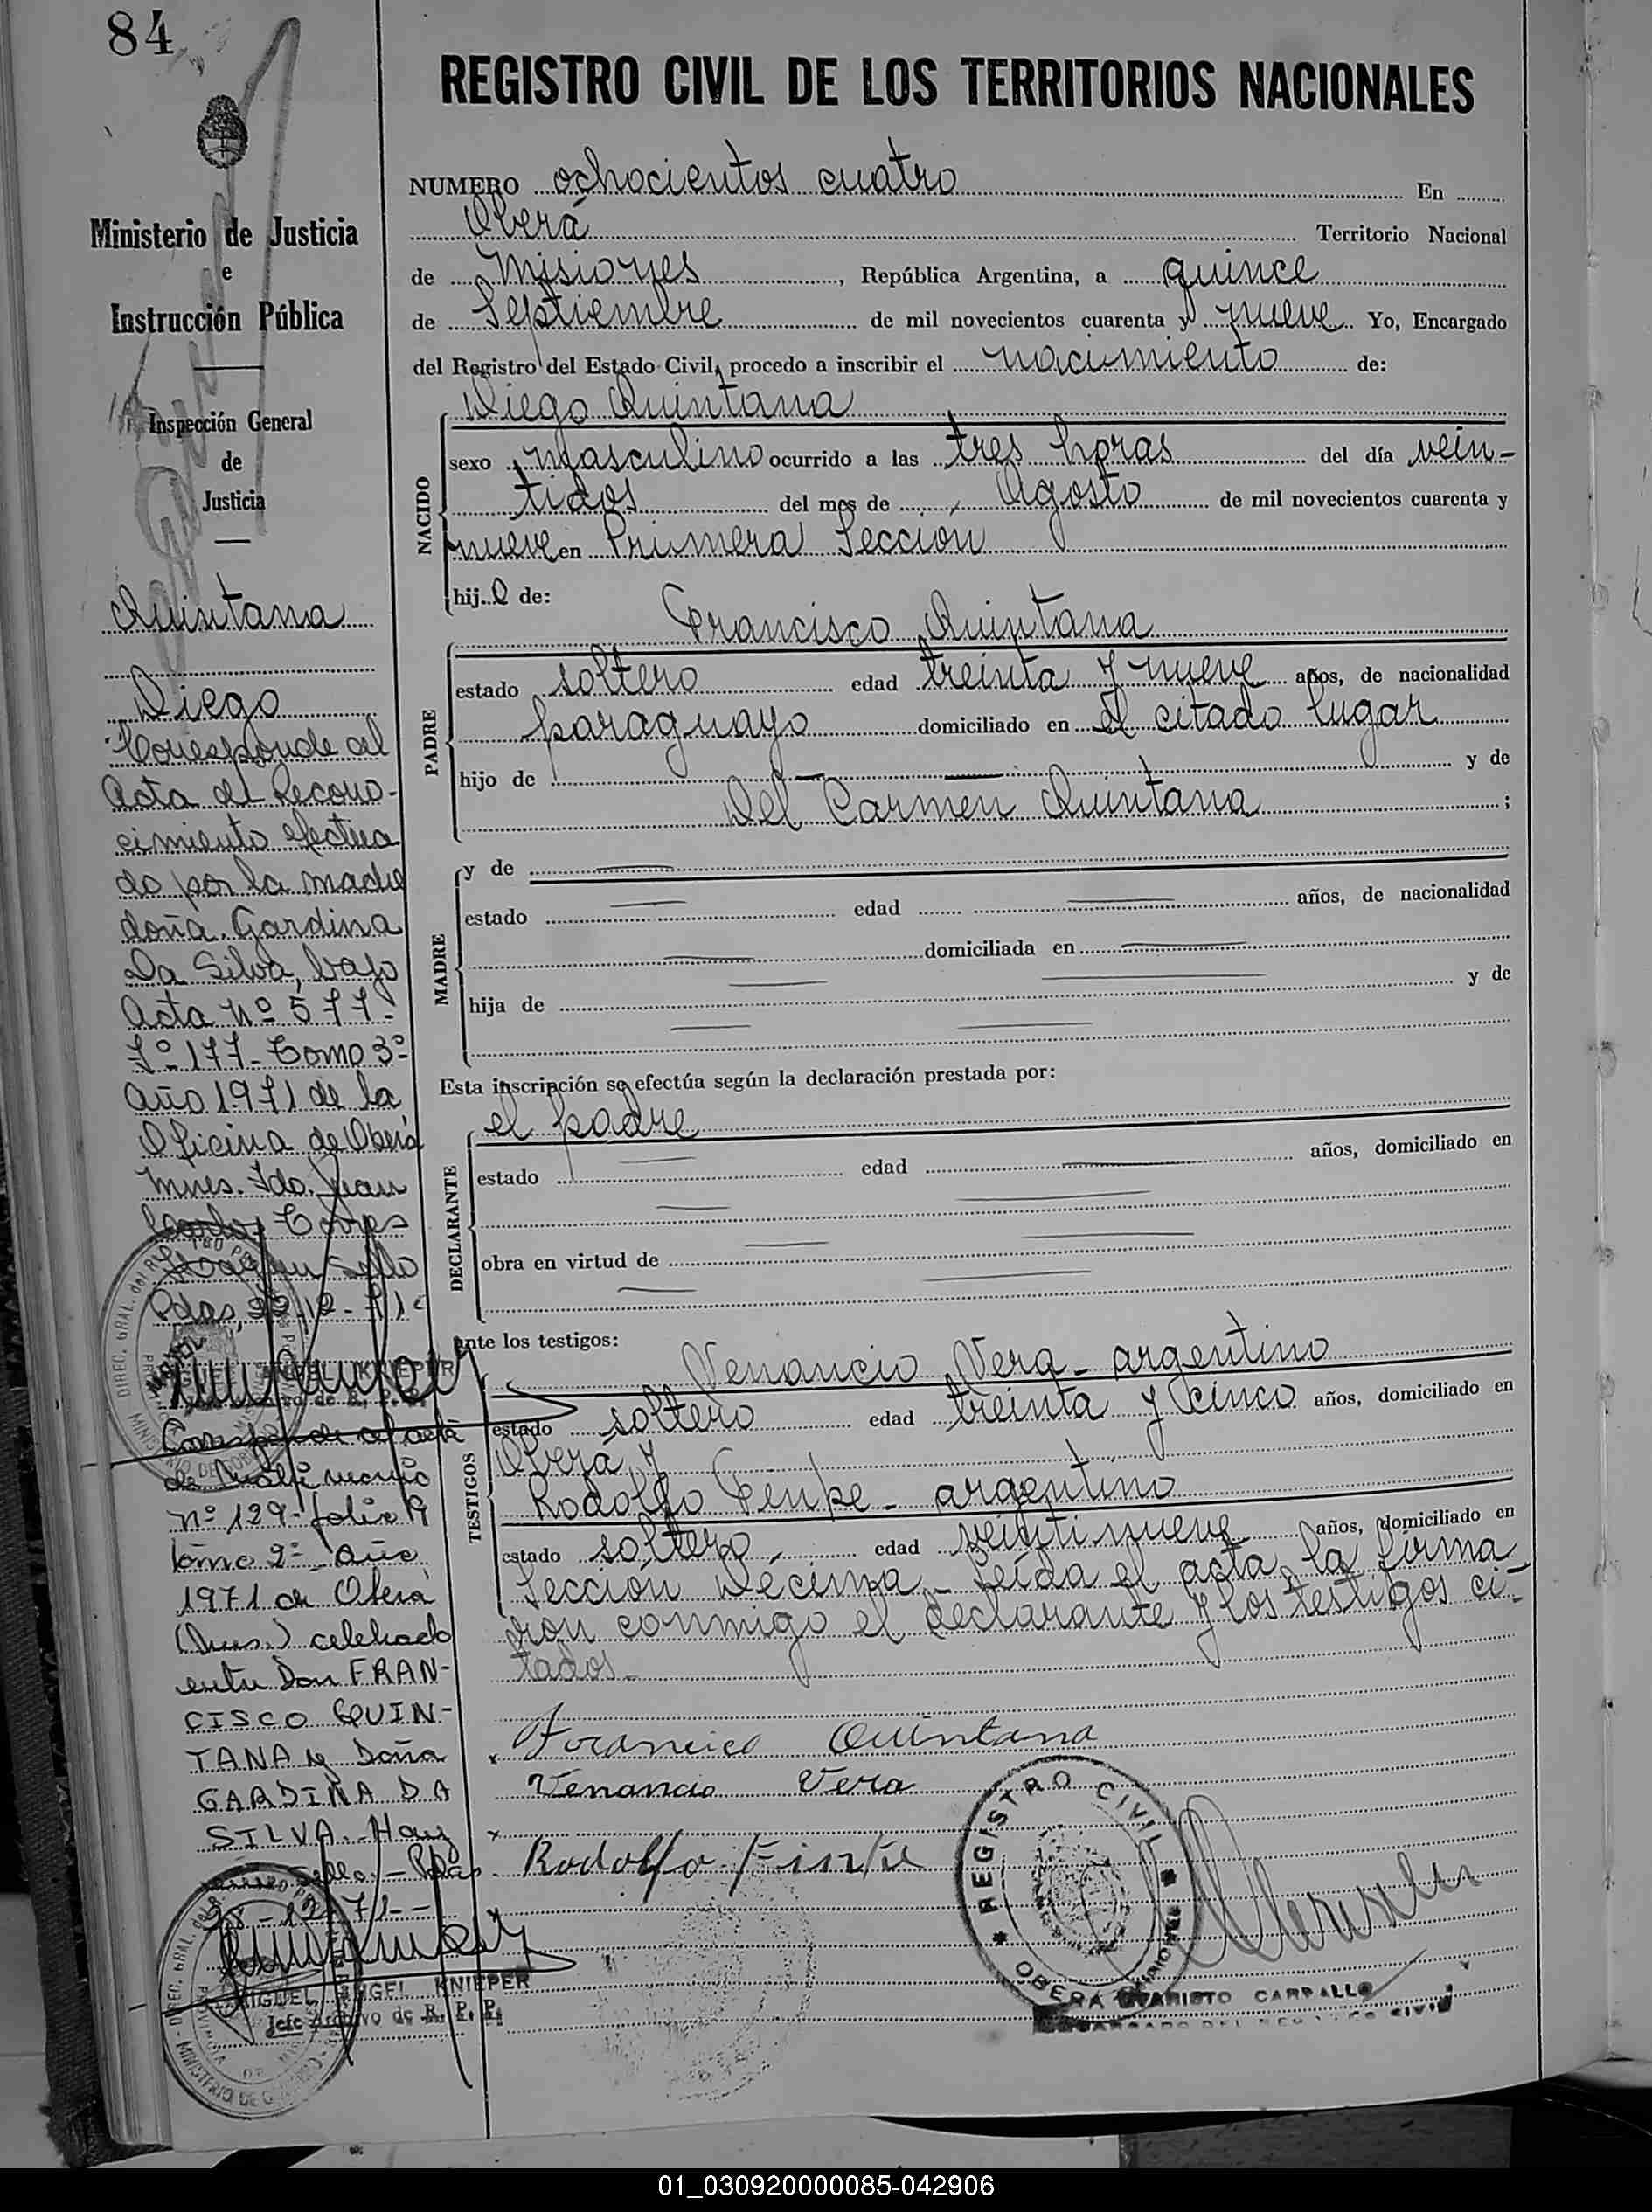 84
REGISTRO CIVIL DE LOS TERRITORIOS NACIONALES
Ministerio de Justicia
e
Instrucción Pública
Inspección General
de
Justicia
Quintana
Diego
Corresponde al
Acta de Recono-
cimiento efectua
do por la madre
doña Gardina
Da Silva, bajo
Acta Nº 577-
Fº 177- Tomo 3º-
Año 1971 de la
Oficina de Oberá
Mnes. Fdo. Juan
Torres
Hay un Sello
Pdas, 22-12-71
Corresponde al acta
de Matrimonio
Nº 129- folio 19
tomo 2º- Año
1971 de Oberá
(Mnes.) celebrado
entre Don FRAN-
CISCO QUIN-
TANA y Doña
GARDINA DA
SILVA. Hay
Sello.- Pdas
-12-71--
MIGUEL ANGEL KNIEPER
Jefe Archivo de R. P. P.
NUMERO ochocientos cuatro En
Oberá Territorio Nacional
de Misiones, República Argentina, a quince
de Septiembre de mil novecientos cuarenta y nueve Yo, Encargado
del Registro del Estado Civil, procedo a inscribir el nacimiento de:
Diego Quintana
NACIDO
sexo masculino ocurrido a las tres horas del día vein-
tidos del mes de Agosto de mil novecientos cuarenta y
nueve en Primera Sección
hijo de:
Francisco Quintana
PADRE
estado soltero edad treinta y nueve años, de nacionalidad
paraguayo domiciliado en el citado lugar
hijo de y de
Del Carmen Quintana ;
MADRE
y de
estado edad años, de nacionalidad
domiciliada en
hija de y de
Esta inscripción se efectúa según la declaración prestada por:
el padre
DECLARANTE
estado edad años, domiciliado en
obra en virtud de
ante los testigos:
Venancio Vera - argentino
TESTIGOS
estado soltero edad treinta y cinco años, domiciliado en
Oberá y
Rodolfo Finke - argentino
estado soltero edad veintinueve años, domiciliado en
Sección Décima - Leída el acta, la firma
ron conmigo el declarante y los testigos ci-
tados.-
Francisco Quintana
Venancio Vera
Rodolfo Finke
REGISTRO CIVIL
OBERA
EVARISTO CARBALLO
ENCARGADO DEL REGISTRO CIVIL
01_030920000085-042906